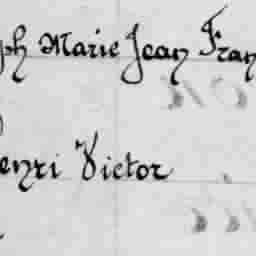 ph Marie Jean Fran
enri Victor